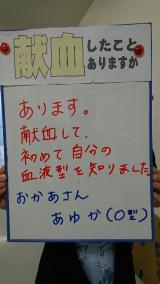 献血したこと
ありますか
あります。
献血して、
初めて自分の
血液型を知りました
おかあさん
あゆか(O型)